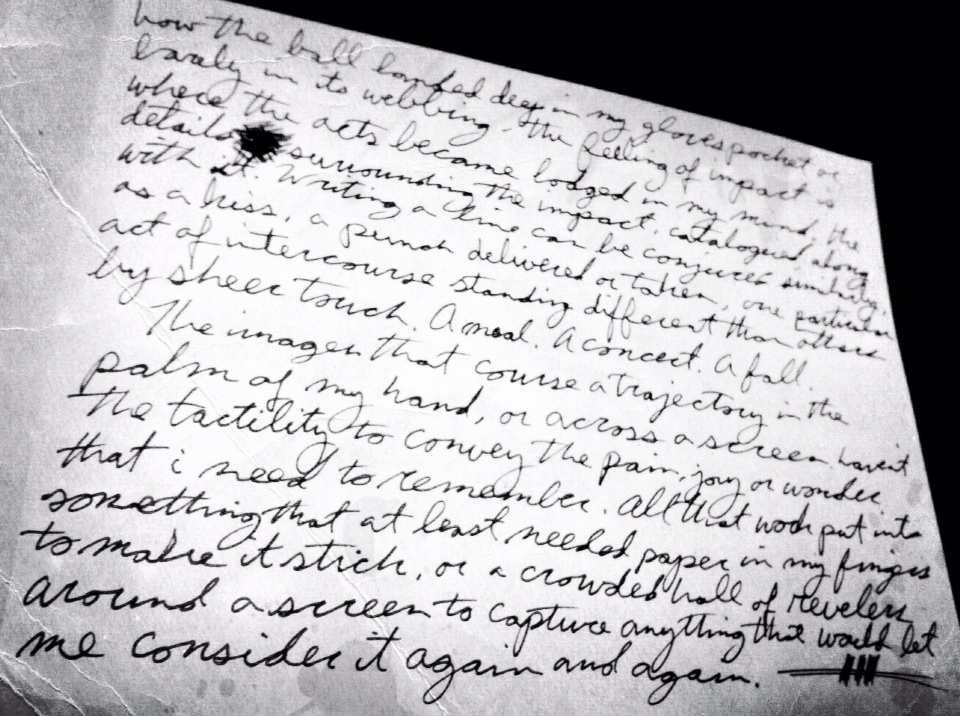 how the ball landed deep in my gloves pocket or
barely in its webbing - the feeling of impact is
where the acts became lodged in my mind, the
details surrounding the impact, catalogued along
with it. Writing a line can be conjured similarly,
as a kiss, a punch delivered or taken, one particular
act of intercourse standing different than others
by sheer touch. A meal. A concert. A fall.
The images that course a trajectory in the
palm of my hand, or across a screen havent
the tactility to convey the pain, joy or wonder
that i need to remember. All that work put into
something that at least needed paper in my fingers
to make it stick, or a crowded hall of revelers
around a screen to capture anything that would let
me consider it again and again.